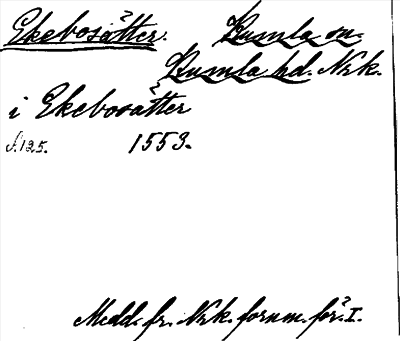 Ekebosätter. Kumla sn.
Kumla hd. Nrk.
i Ekebosätter
S. 125. 1553.
Medd. fr. Nrk. fornm. för. I.